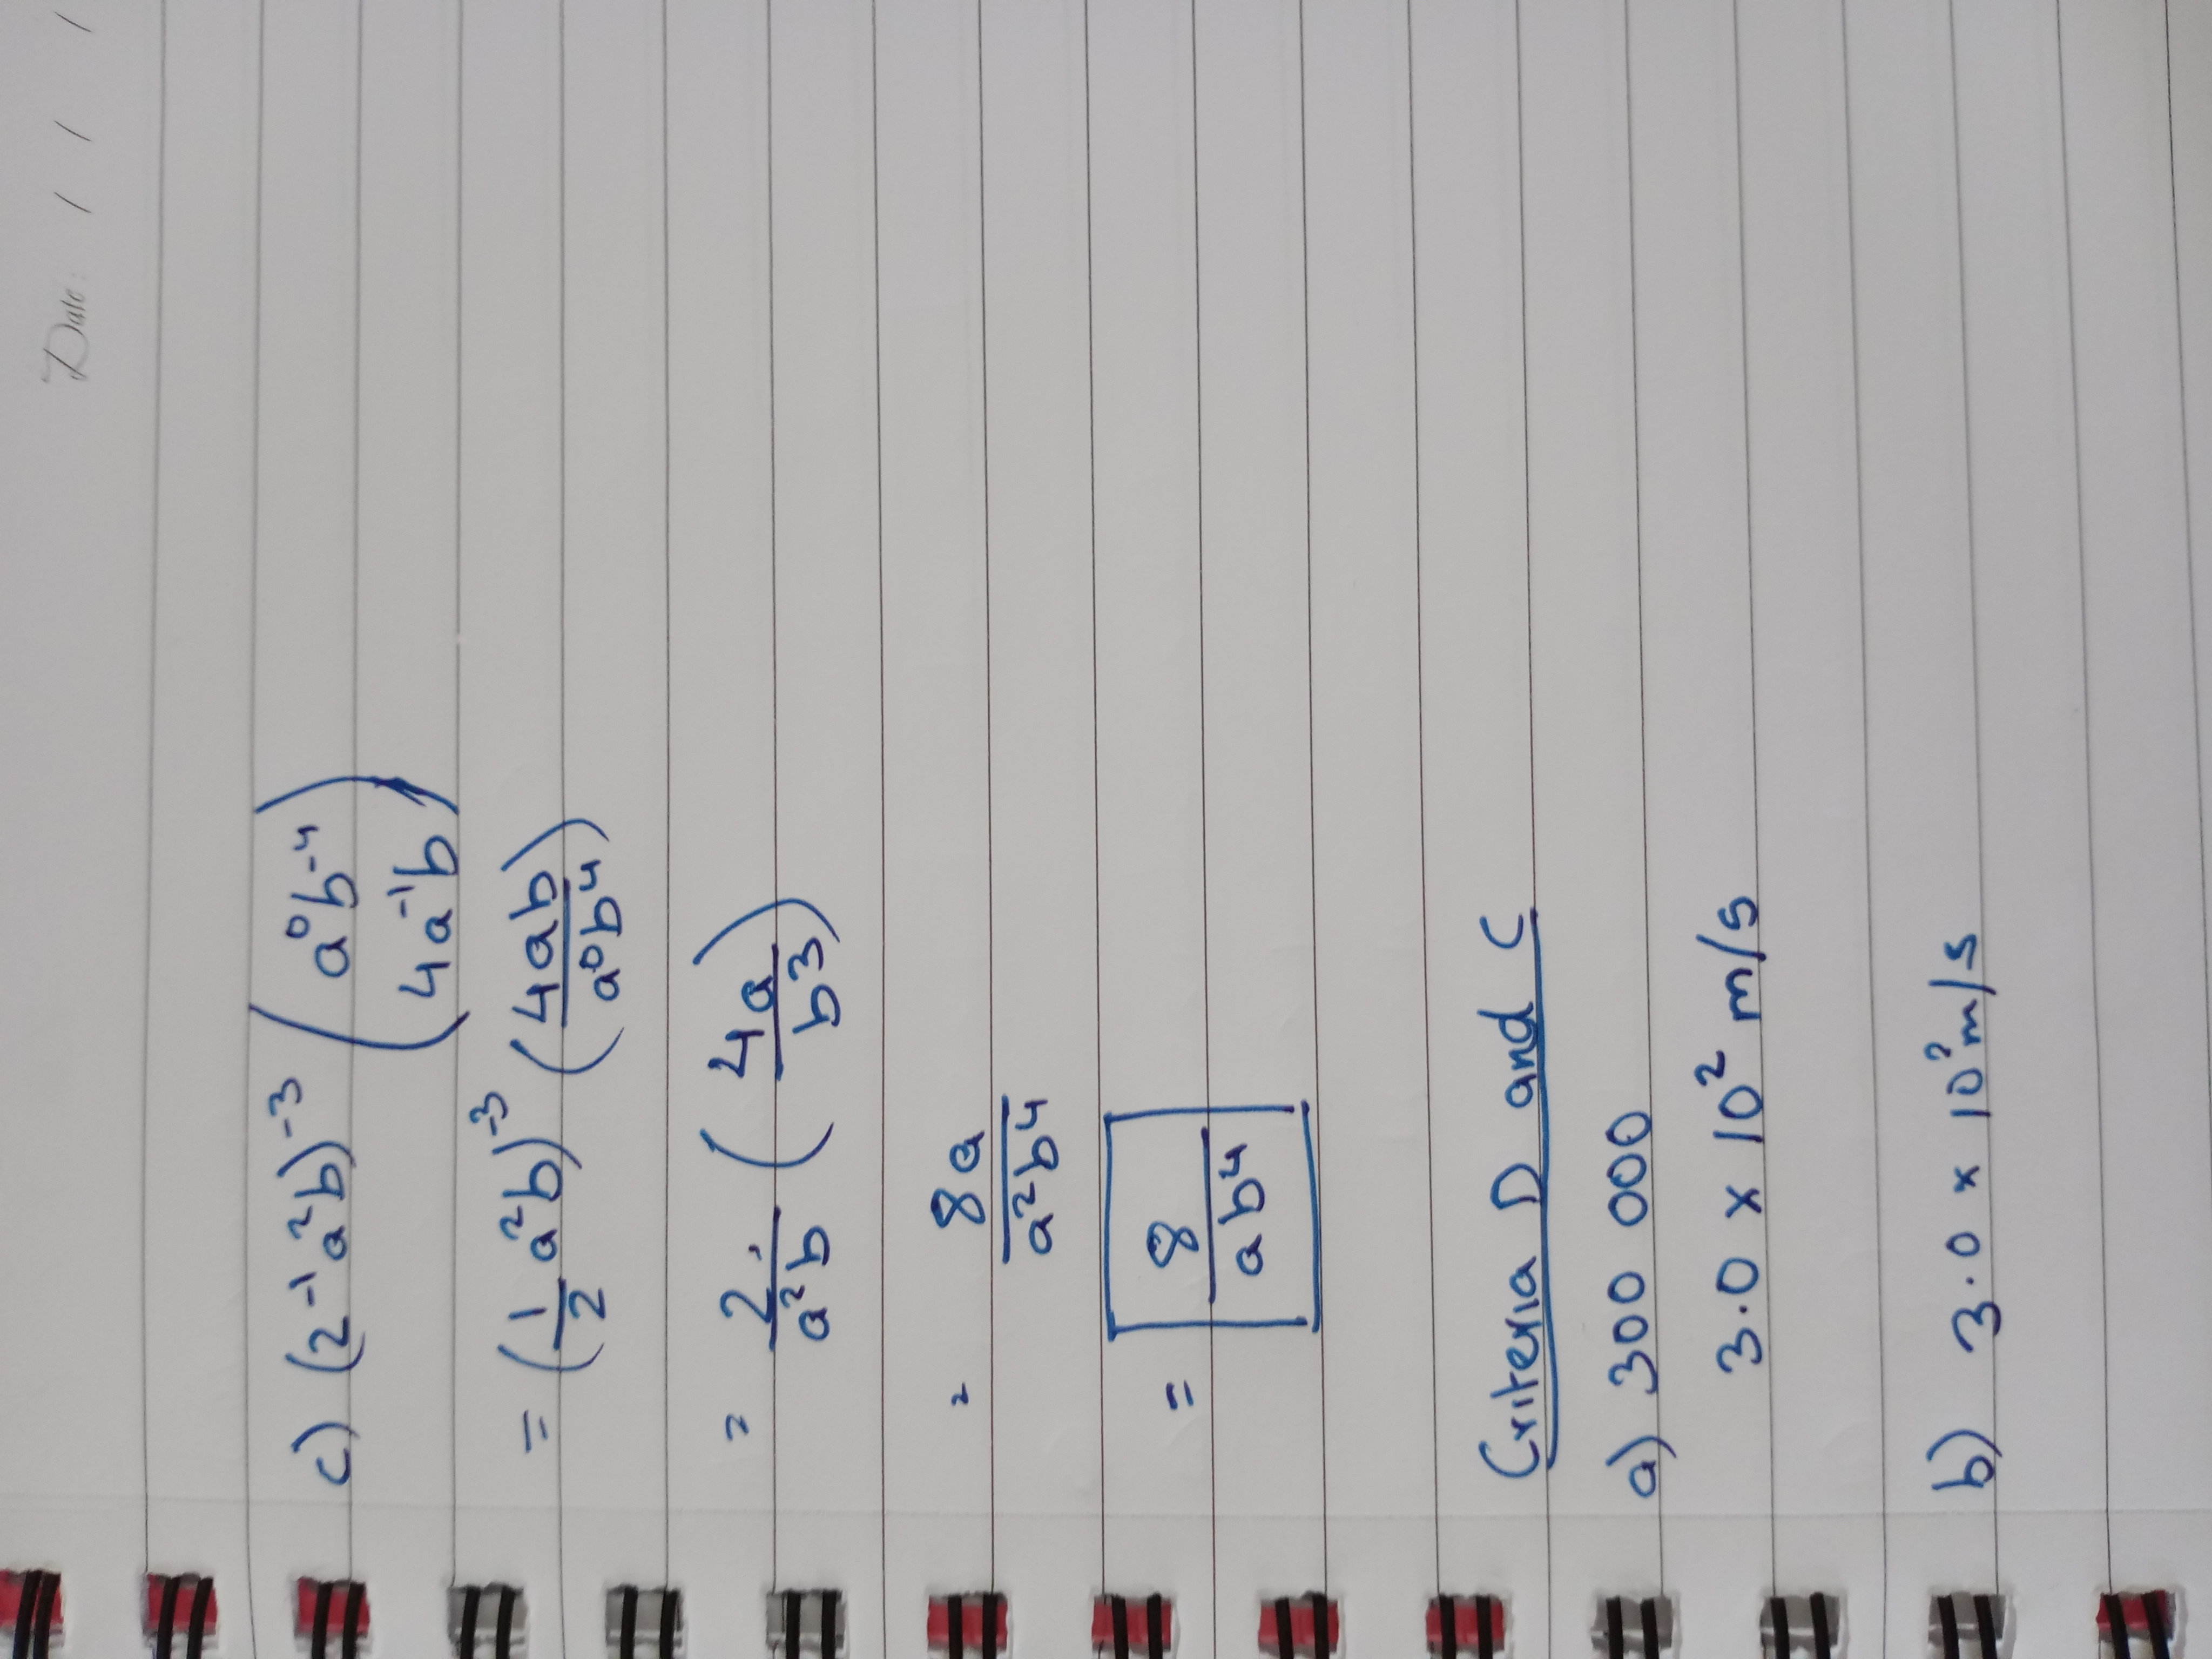 Date: / / /
c) (2⁻¹a²b)⁻³ (a⁰b⁻⁴ / 4a⁻¹b)
= (1/2 a²b)⁻³ (4ab / a⁰b⁴)
= 2/a²b (4a / b3)
= 8a / a²b⁴
= 8 / ab⁴
Criteria D and C
a) 300 000
3.0 x 10² m/s
b) 3.0 x 10² m/s